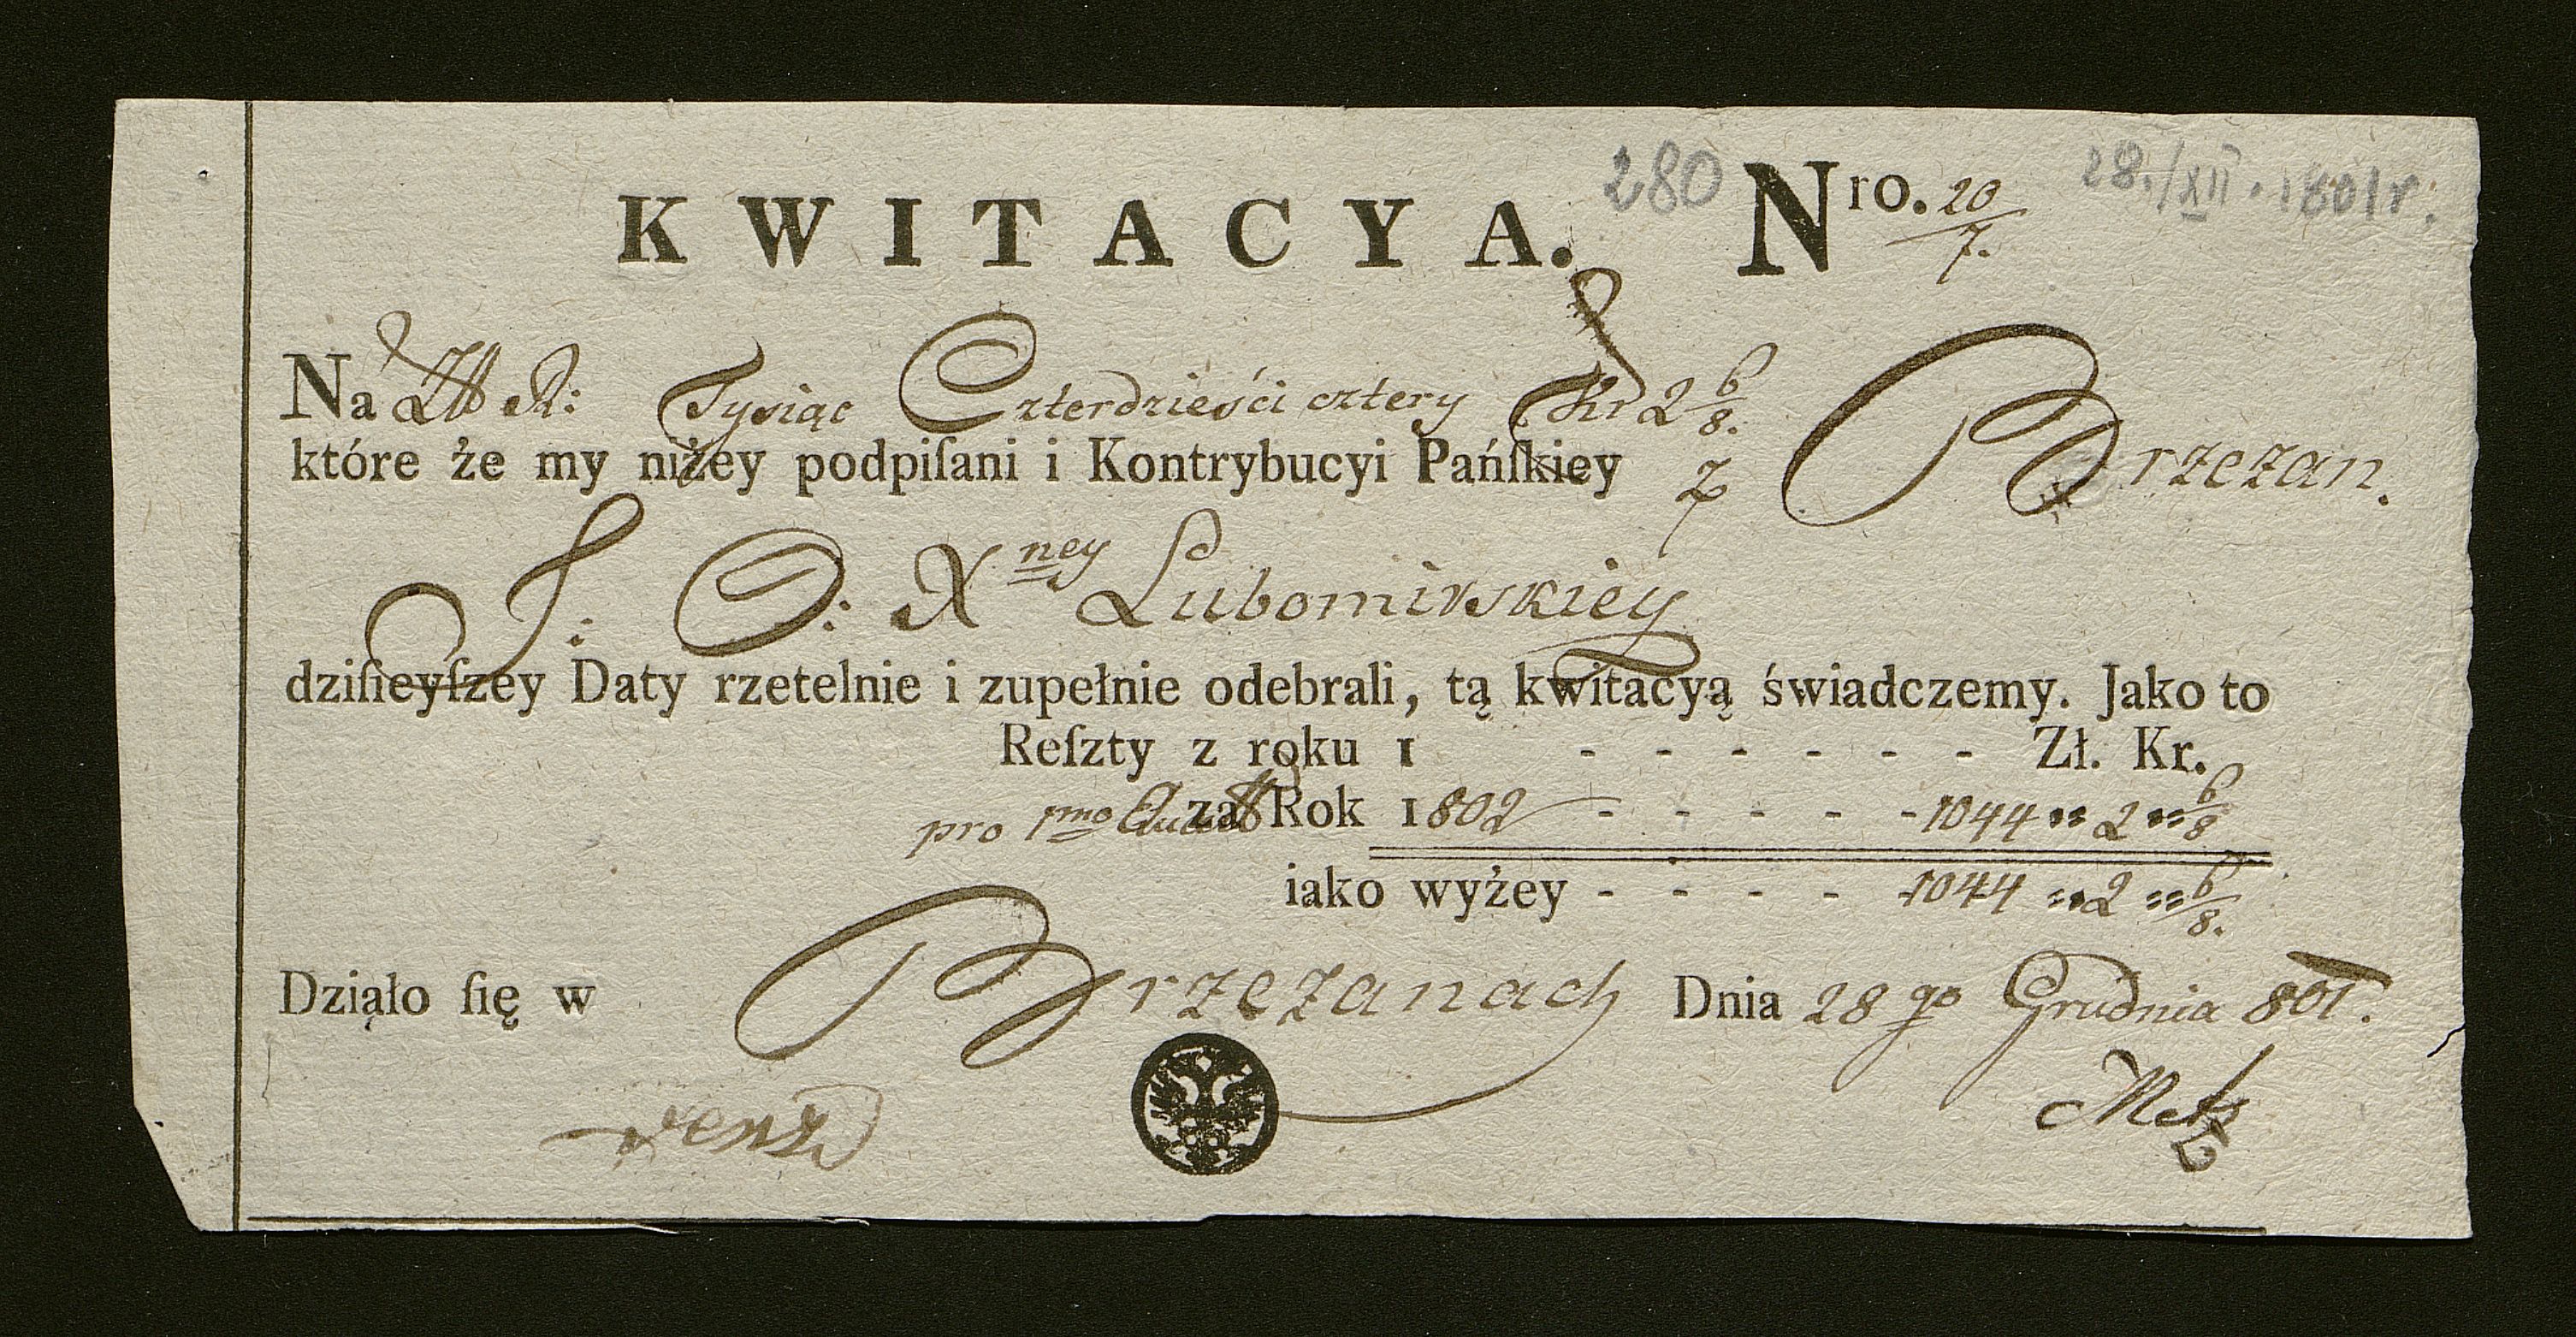 280 28./XII. 1801 r.
KWITACYA. Nro. 20/7.
Na Tysiąc Czterdzieści cztery Kr 2 6/8.
które że my niżey podpiſani i Kontrybucyi Pańſkiey z Brzezan.
J: O: Xney Lubomirskiey
dziſieyſzey Daty rzetelnie i zupełnie odebrali, tą kwitacyą świadczemy. Jako to
Reſzty z roku 1 - - - - - - Zł. Kr.
pro 1mo za Rok 1802 - - - - - 1044 " 2 " 6/8
iako wyżey - - - - 1044 " 2 " 6/8.
Działo ſię w Brzezanach Dnia 28 go Grudnia 801.
Metz